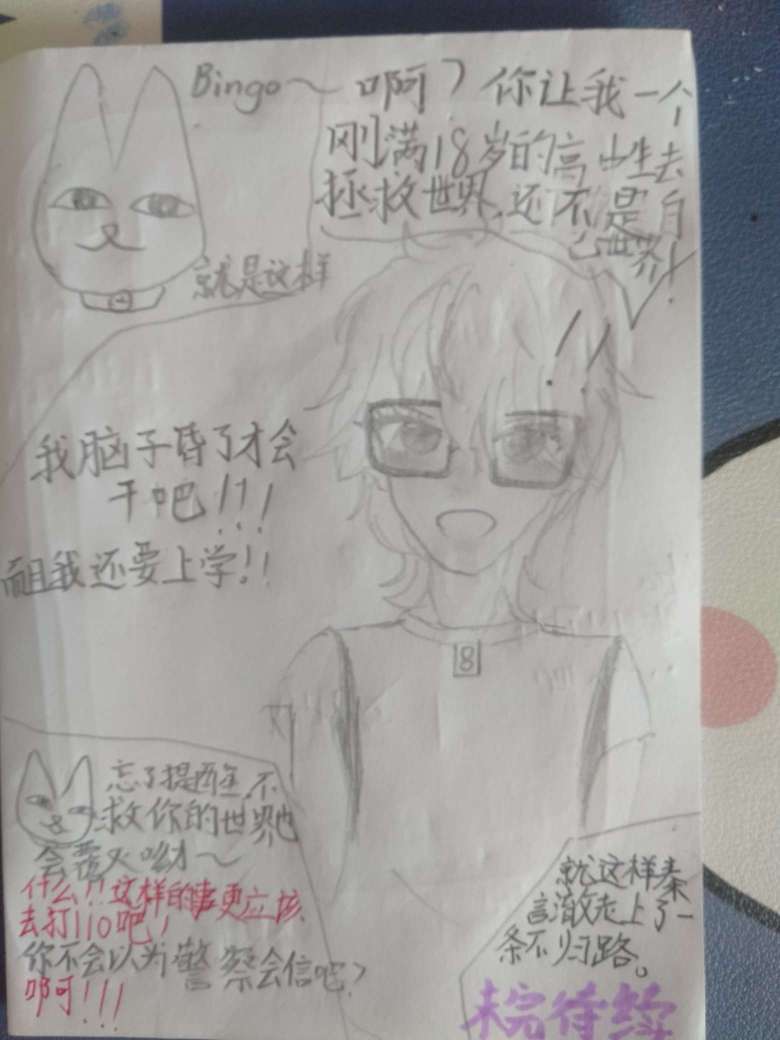 Bingo～
就是这样
啊？你让我一个
刚满18岁的高中生去
拯救世界，还不是自
己世界！
！！
我脑子昏了才会
干吧！！！
而且我还要上学！！
8
忘了提醒，不
救你的世界也
会覆灭呦～
什么！！这样的事更应该
去打110吧！
你不会以为警察会信吧？
啊！！！
就这样秦
言澈走上了一
条不归路。
未完待续